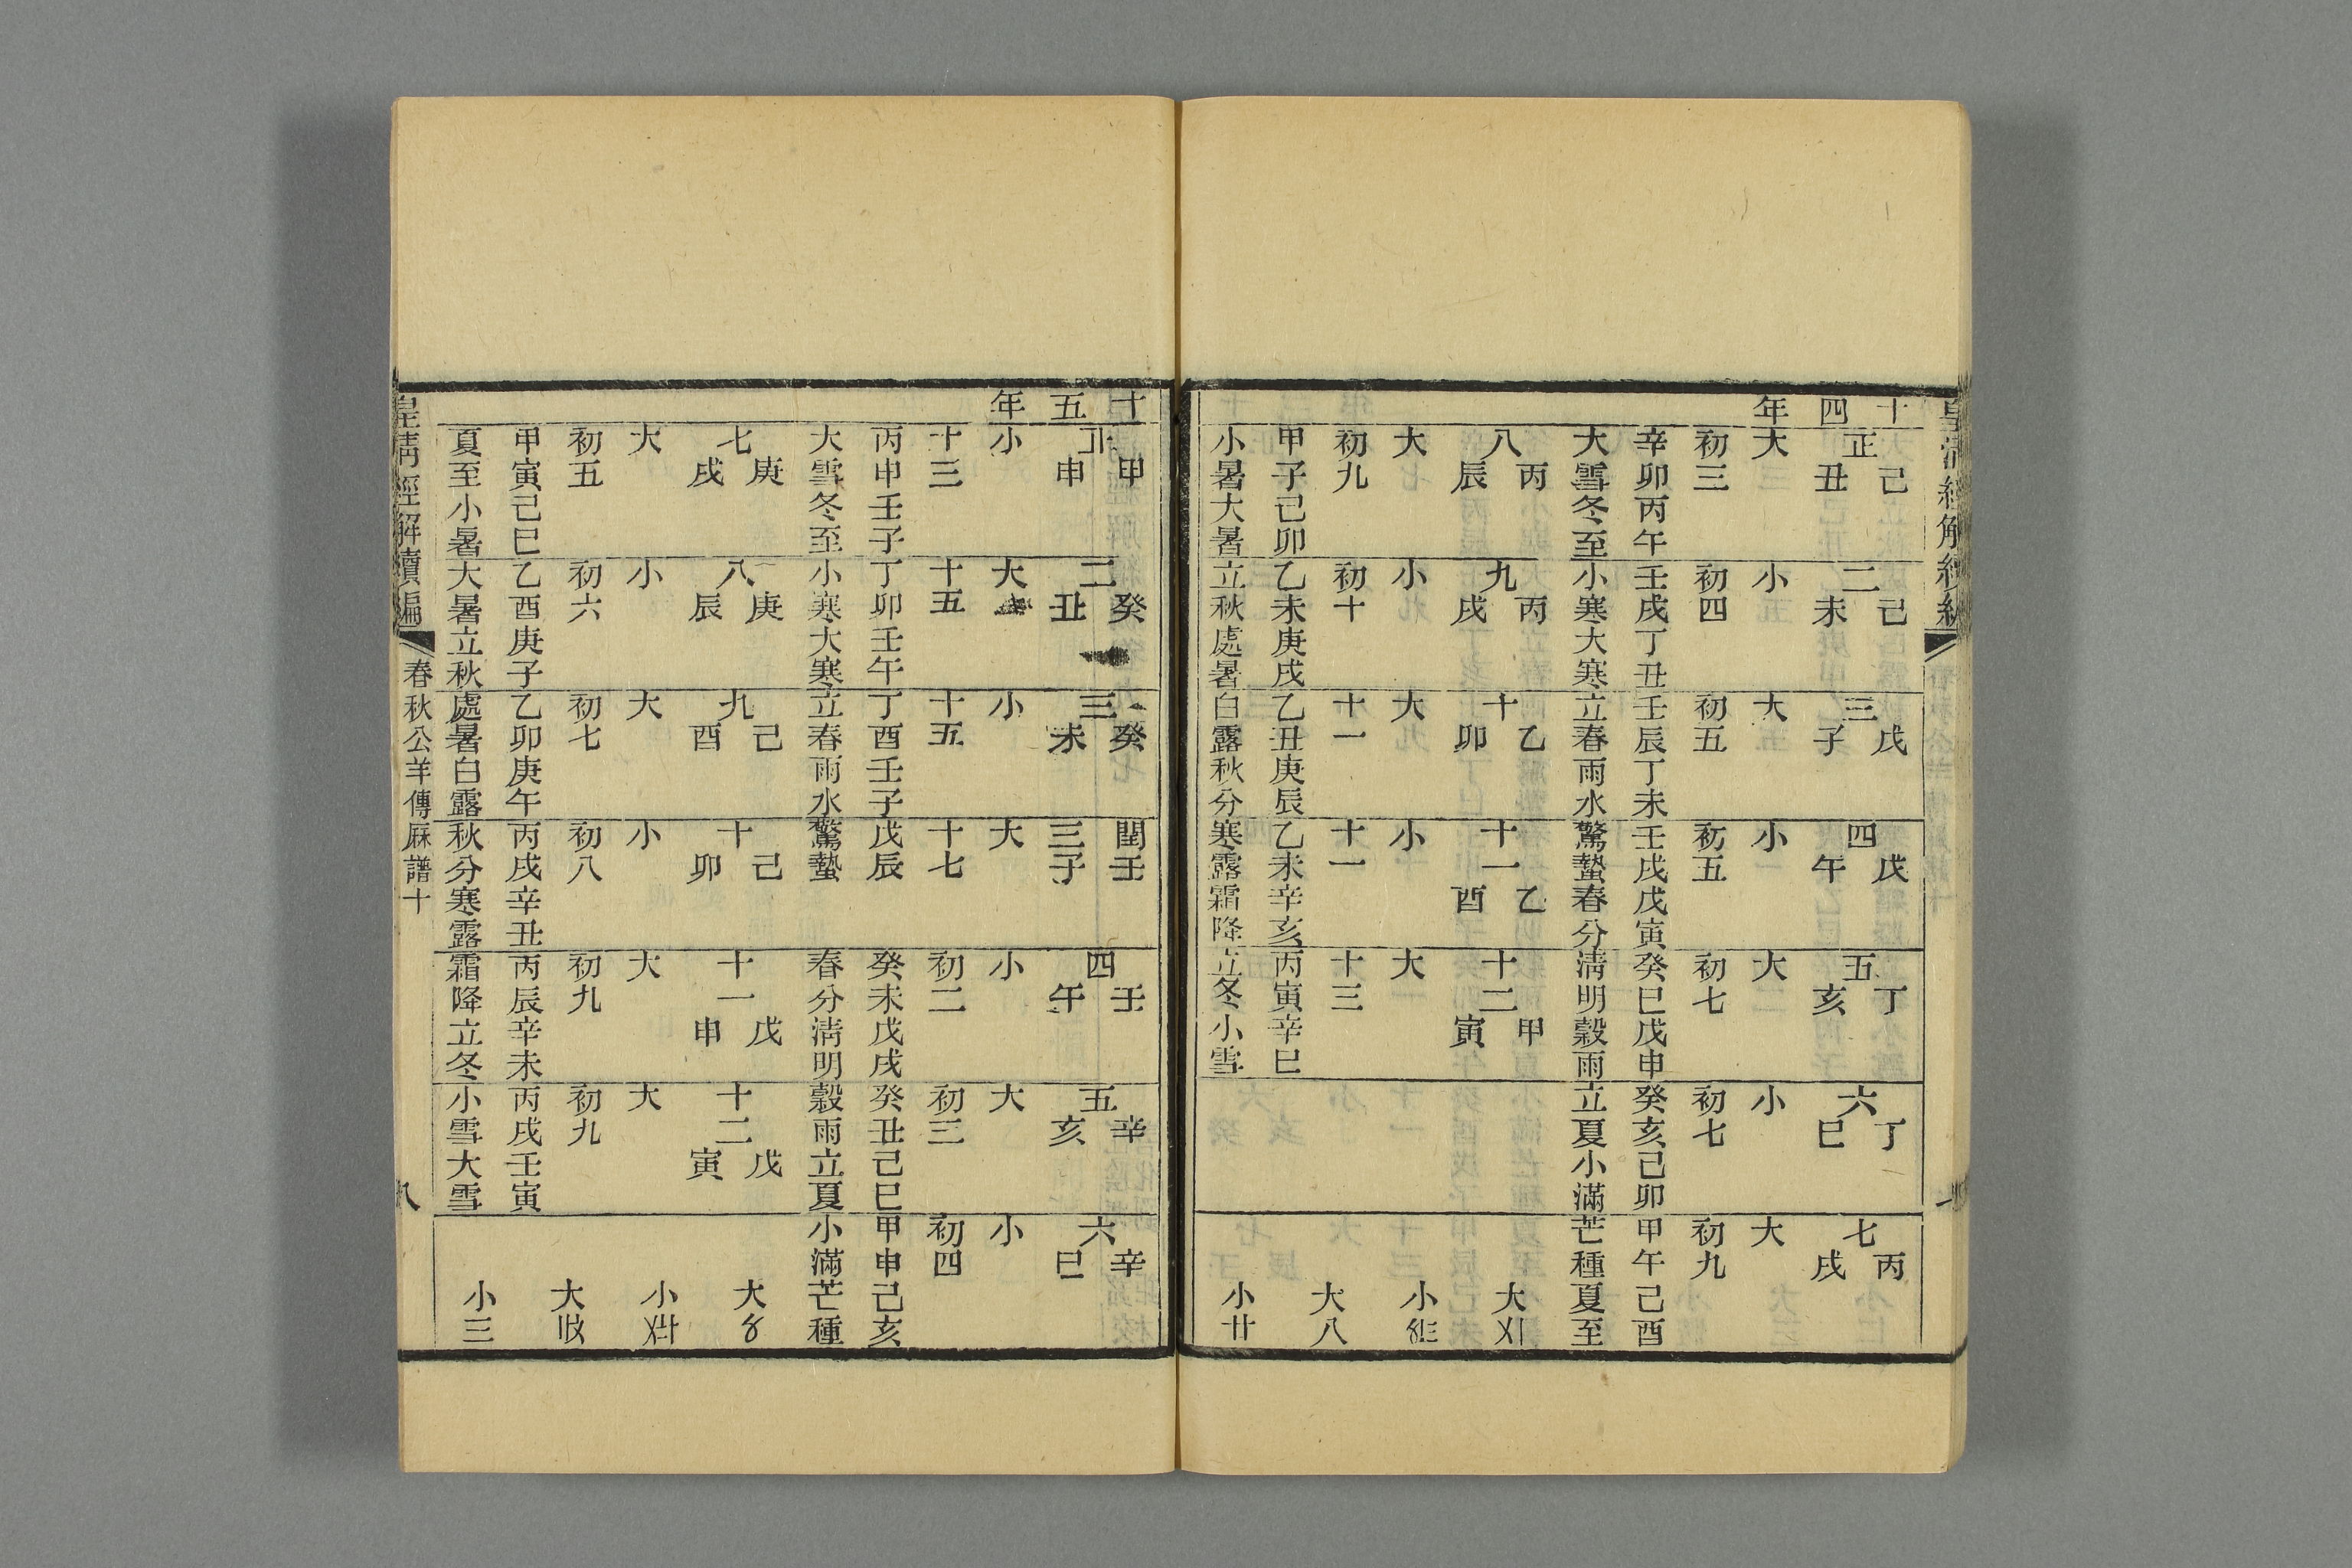 十四年
正己丑
大
初三
辛卯丙午
大雪冬至
二己未
小
初四
壬戌丁丑
小寒大寒
三戊子
大
初五
壬辰丁未
立春雨水
四戊午
小
初五
壬戌戊寅
驚蟄春分
五丁亥
大
初七
癸巳戊申
清明穀雨
六丁巳
小
初七
癸亥己卯
立夏小滿
七丙戌
大
初九
甲午己酉
芒種夏至
八丙辰
大
初九
甲子己卯
小暑大暑
九丙戌
小
初十
乙未庚戌
立秋處暑
十乙卯
大
十一
乙丑庚辰
白露秋分
十一乙酉
小
十一
乙未辛亥
寒露霜降
十二甲寅
大
十三
丙寅辛巳
立冬小雪
大
小
大八
小廿
十五年
正甲申
小
十三
丙申壬子
大雪冬至
二癸丑
大
十五
丁卯壬午
小寒大寒
三癸未
小
十五
丁酉壬子
立春雨水
閏三壬子
大
十七
戊辰
驚蟄
四壬午
小
初二
癸未戊戌
春分清明
五辛亥
大
初三
癸丑己巳
穀雨立夏
六辛巳
小
初四
甲申己亥
小滿芒種
七庚戌
大
初五
甲寅己巳
夏至小暑
八庚辰
小
初六
乙酉庚子
大暑立秋
九己酉
大
初七
乙卯庚午
處暑白露
十己卯
小
初八
丙戌辛丑
秋分寒露
十一戊申
大
初九
丙辰辛未
霜降立冬
十二戊寅
大
初九
丙戌壬寅
小雪大雪
大
小
大
小三
皇清經解續編
春秋公羊傳厤譜十
八